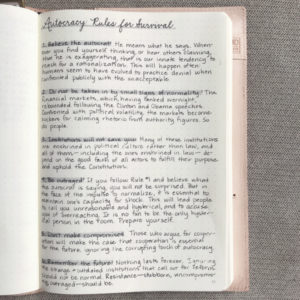 Autocracy: Rules for Survival
1. Believe the autocrat! He means what he says. When-
ever you find yourself thinking, or hear others claiming,
that he is exaggerating, that is our innate tendency to
reach for a rationalization. This will happen often:
humans seem to have evolved to practice denial when
confronted publicly with the unacceptable.
2. Do not be taken in by small signs of normality!
financial markets, which, having tanked overnight,
rebounded following the Clinton and Obama speeches.
Confronted with political volatility, the markets become
suckers for calming rhetoric from authority figures. So
do people.
3. Institutions will not save you! Many of these institutions
are enshrined in political culture rather than in law, and
all of them—including the ones enshrined in law—de-
pend on the good faith of all actors to fulfill their purpose
and uphold the Constitution.
4. Be outraged! If you follow Rule #1 and believe what
the autocrat is saying, you will not be surprised. But in
the face of the impulse to normalize, it is essential to
maintain one's capacity for shock. This will lead people
to call you unreasonable and hysterical, and to accuse
you of overreacting. It is no fun to be the only hyster-
ical person in the room. Prepare yourself.
5. Don't make compromises. Those who argue for cooper-
ation will make the case that cooperation is essential
for the future, ignoring the corrupting touch of autocracy.
6. Remember the future! Nothing lasts forever.
Resistance—stubborn, uncompromi-
outraged—should be.